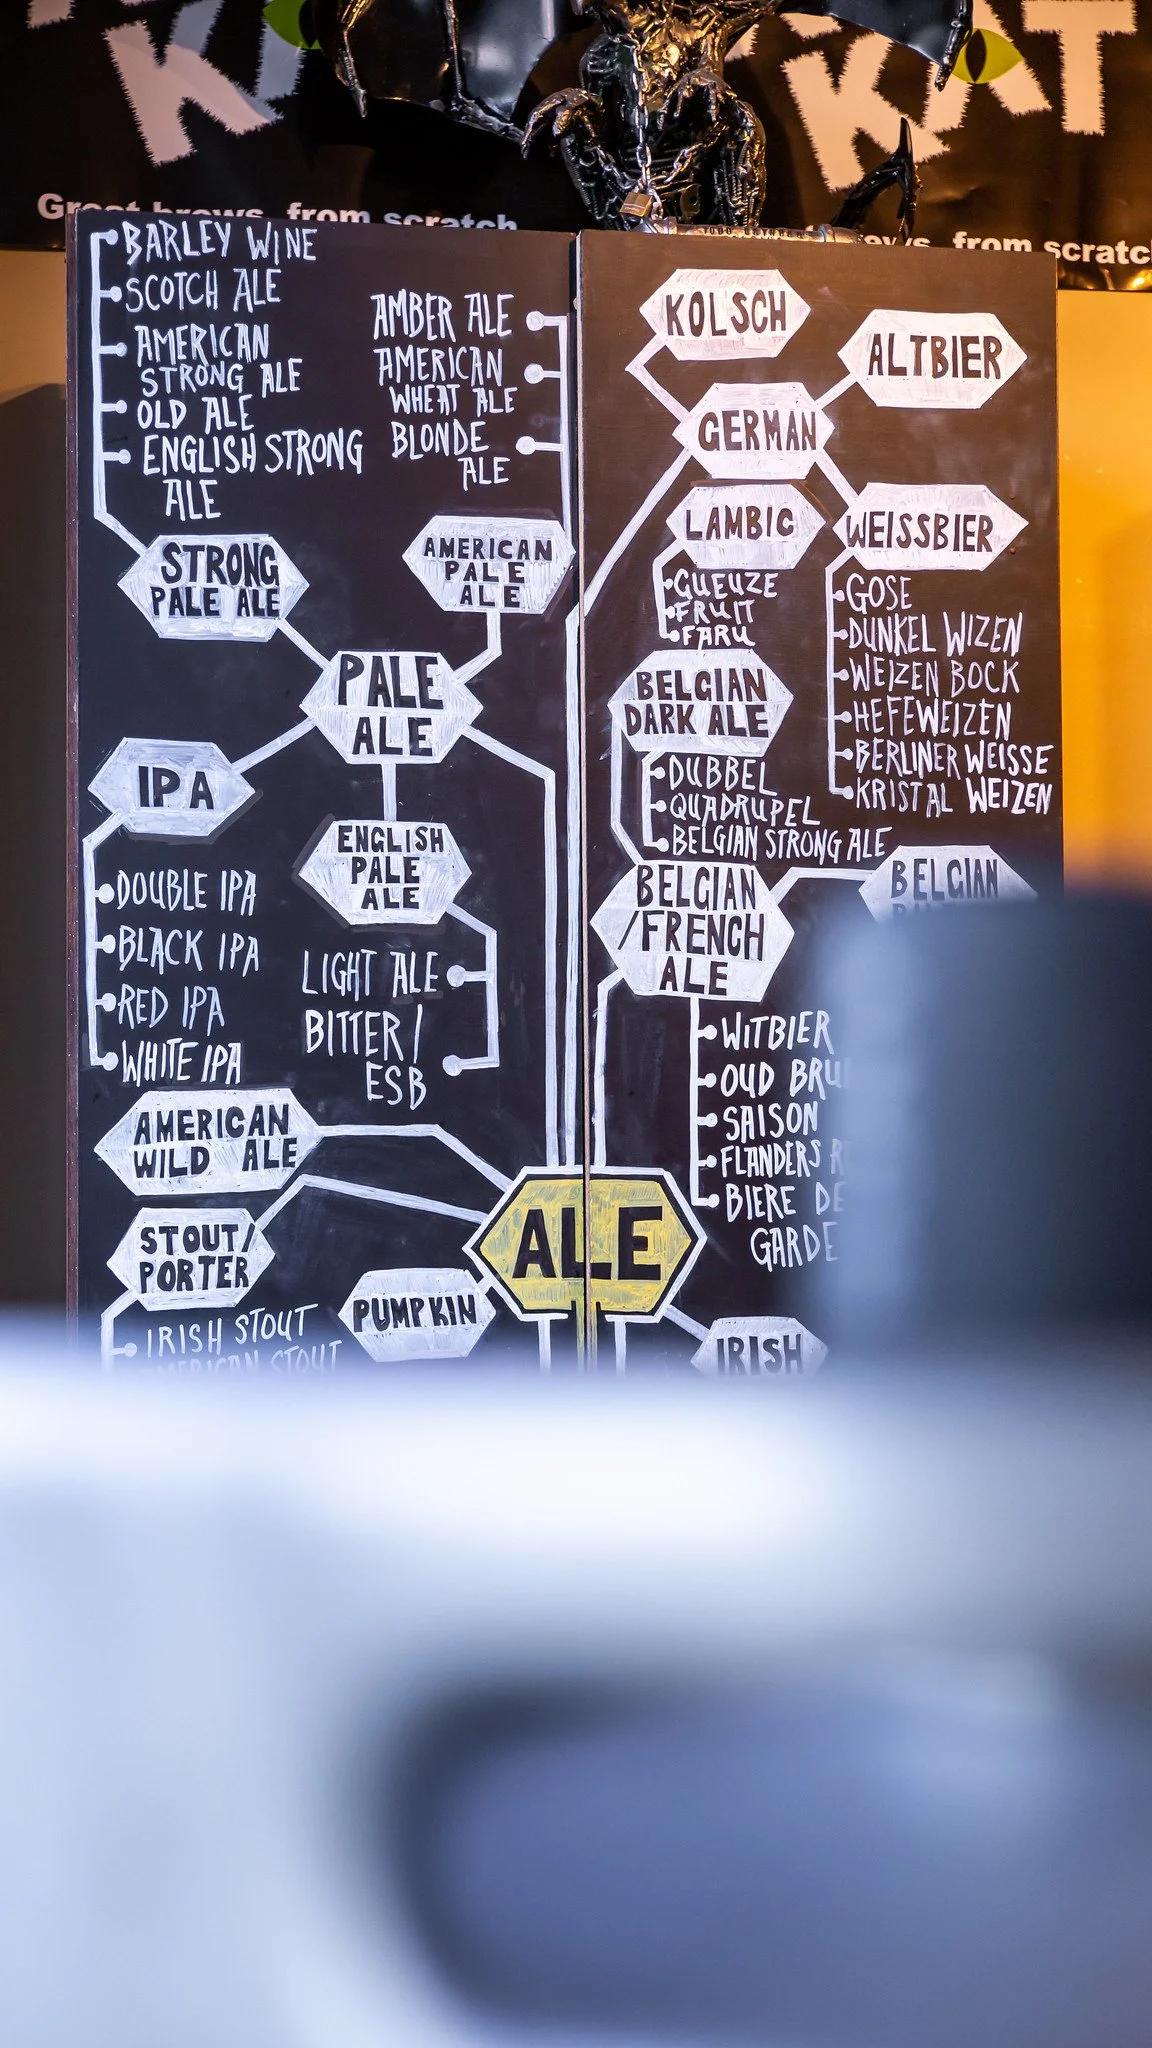 KAT
Great brews, from scratch
from scratch
BARLEY WINE
SCOTCH ALE
AMERICAN
STRONG ALE
OLD ALE
ENGLISH STRONG
ALE
AMBER ALE
AMERICAN
WHEAT ALE
BLONDE
ALE
STRONG
PALE ALE
AMERICAN
PALE
ALE
PALE
ALE
IPA
ENGLISH
PALE
ALE
DOUBLE IPA
BLACK IPA
RED IPA
WHITE IPA
LIGHT ALE
BITTER /
ESB
AMERICAN
WILD ALE
STOUT/
PORTER
IRISH STOUT
AMERICAN STOUT
PUMPKIN
ALE
KOLSCH
ALTBIER
GERMAN
LAMBIC
WEISSBIER
GUEUZE
FRUIT
FARU
GOSE
DUNKEL WIZEN
WEIZEN BOCK
HEFEWEIZEN
BERLINER WEISSE
KRISTAL WEIZEN
BELGIAN
DARK ALE
DUBBEL
QUADRUPEL
BELGIAN STRONG ALE
BELGIAN
/FRENCH
ALE
BELGIAN
WITBIER
OUD BRU
SAISON
FLANDERS
BIERE DE
GARDE
IRISH